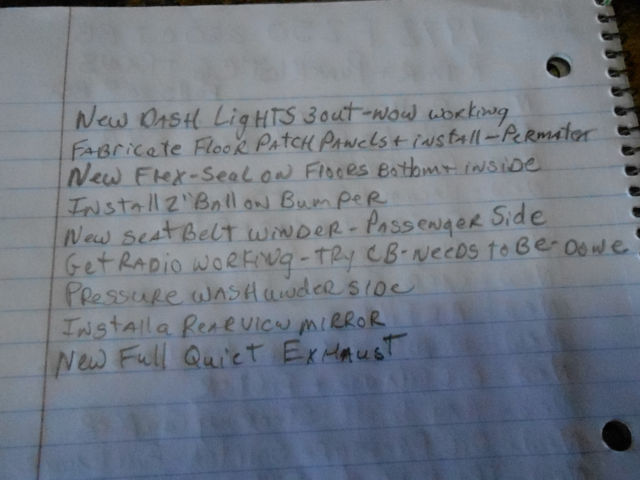 New DASH LigHTS 3out-Now working
FABricate FLOOR PATCH PANels + install - PerMAtex
New Flex-Seal on Floors Bottom + inside
INStall 2" Ball on BumPeR
New seat Belt WINDER - Passenger Side
Get RADio WORKiNg - TRY CB - NeeDS to Be - DONe
PRessure WASH under SiDe
INStall a ReaRView MiRROR
New Full Quiet ExHAusT